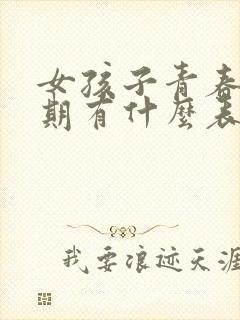 女孩子青春
期有什麼表
我要浪迹天涯